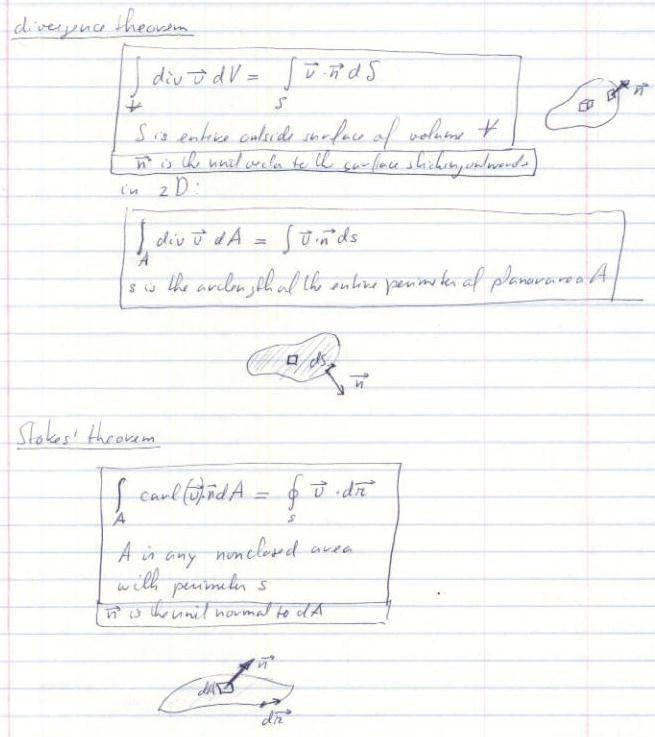 divergence theorem
∫ div v⃗ dV = ∫ v⃗ · n⃗ dS
V S
S is entire outside surface of volume V
n⃗ is the unit vector to the surface sticking outwards
n⃗
in 2D:
∫ div v⃗ dA = ∫ v⃗ · n⃗ ds
A
s is the arclength of the entire perimeter of planar area A
ds
n⃗
Stokes' theorem
∫ curl(v⃗)·n⃗ dA = ∮ v⃗ · dr⃗
A s
A is any nonclosed area
with perimeter s
n⃗ is the unit normal to dA
n⃗
dA
dr⃗